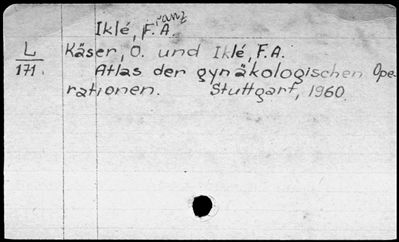 Iklé, F.ranz A.
L Käser, O. und Iklé, F.A.
171. Atlas der gynäkologischen Ope-
rationen. Stuttgart, 1960.